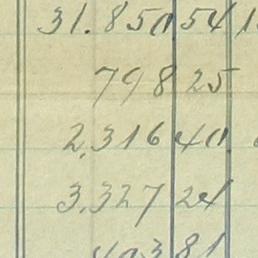 31.850 54
798 25
2.316 40
3.327 24
403 81